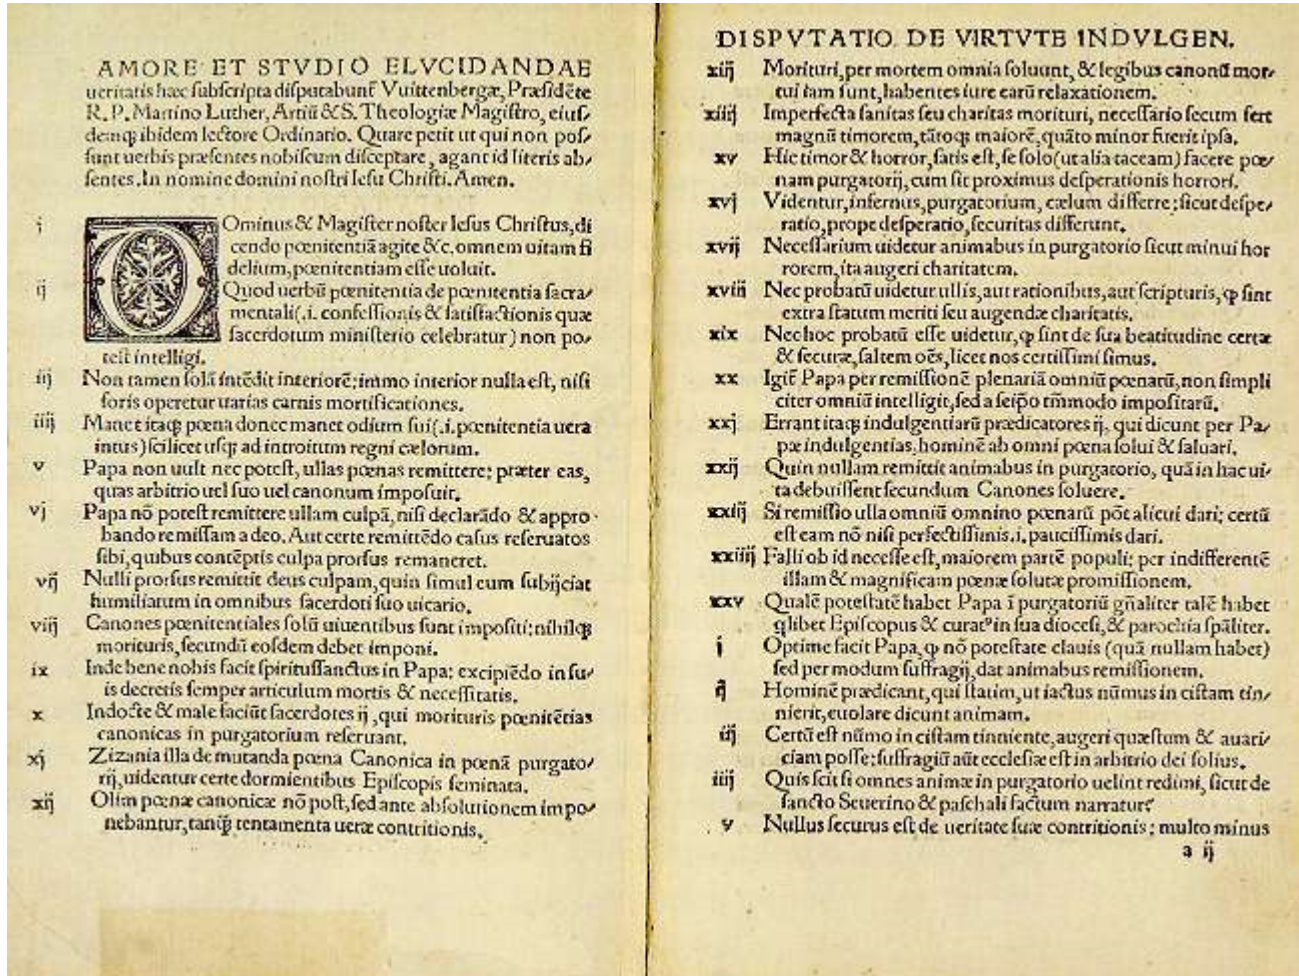 AMORE ET STVDIO ELVCIDANDAE
ueritatis hæc subscripta disputabunt̃ Vuittenbergæ, Præsidẽte
R. P. Martino Luther, Artiũ & S. Theologiæ Magistro, eius/
demq; ibidem lectore Ordinario. Quare petit ut qui non pos/
sunt uerbis præsentes nobiscum disceptare, agant id literis ab/
sentes. In nomine domini nostri Iesu Christi. Amen.
i DOminus & Magister noster Iesus Christus, di
cendo pœnitentiã agite &c. omnem uitam fi
delium, pœnitentiam esse uoluit.
ij Quod uerbũ pœnitentia de pœnitentia sacra/
mentali (.i. confessionis & satisfactionis quæ
sacerdotum ministerio celebratur) non po/
test intelligi.
iij Non tamen solã intẽdit interiorẽ: immo interior nulla est, nisi
foris operetur uarias carnis mortificationes.
iiij Manet itaq; pœna donec manet odium sui (.i. pœnitentia uera
intus) scilicet usq; ad introitum regni cælorum.
v Papa non uult nec potest, ullas pœnas remittere: præter eas,
quas arbitrio uel suo uel canonum imposuit.
vj Papa nõ potest remittere ullam culpã, nisi declarãdo & appro
bando remissam a deo. Aut certe remittẽdo casus reseruatos
sibi, quibus contẽptis culpa prorsus remaneret.
vij Nulli prorsus remittit deus culpam, quin simul eum subijciat
humiliatum in omnibus sacerdoti suo uicario.
viij Canones pœnitentiales solũ uiuentibus sunt impositi: nihilq;
morituris, secundũ eosdem debet imponi.
ix Inde bene nobis facit spiritussanctus in Papa: excipiẽdo in su/
is decretis semper articulum mortis & necessitatis.
x Indocte & male faciũt sacerdotes ij, qui morituris pœnitẽtias
canonicas in purgatorium reseruant.
xj Zizania illa de mutanda pœna Canonica in pœnã purgato/
rij, uidentur certe dormientibus Episcopis seminata.
xij Olim pœnæ canonicæ nõ post, sed ante absolutionem impo/
nebantur, tanq̃ tentamenta ueræ contritionis.
DISPVTATIO DE VIRTVTE INDVLGEN.
xiij Morituri, per mortem omnia soluunt, & legibus canonũ mor/
tui iam sunt, habentes iure earũ relaxationem.
xiiij Imperfecta sanitas seu charitas morituri, necessario secum fert
magnũ timorem, tãtoq; maiorẽ, quãto minor fuerit ipsa.
xv Hic timor & horror, satis est, se solo (ut alia taceam) facere pœ
nam purgatorij, cum sit proximus desperationis horrori.
xvj Videntur, infernus, purgatorium, cælum differre: sicut despe/
ratio, prope desperatio, securitas differunt.
xvij Necessarium uidetur animabus in purgatorio sicut minui hor
rorem, ita augeri charitatem.
xviij Nec probatũ uidetur ullis, aut rationibus, aut scripturis, ꝙ sint
extra statum meriti seu augendæ charitatis.
xix Nec hoc probatũ esse uidetur, ꝙ sint de sua beatitudine certæ
& securæ, saltem oẽs, licet nos certissimi simus.
xx Igit̃ Papa per remissionẽ plenariã omniũ pœnarũ, non simpli
citer omniũ intelligit, sed a seip̃o tm̃modo impositarũ.
xxj Errant itaq; indulgentiarũ prædicatores ij, qui dicunt per Pa/
pæ indulgentias, hominẽ ab omni pœna solui & saluari.
xxij Quin nullam remittit animabus in purgatorio, quã in hac ui/
ta debuissent secundum Canones soluere.
xxiij Si remissio ulla omniũ omnino pœnarũ põt alicui dari: certũ
est eam nõ nisi perfectissimis .i. paucissimis dari.
xxiiij Falli ob id necesse est, maiorem partẽ populi: per indifferentẽ
illam & magnificam pœnæ solutæ promissionem.
xxv Qualẽ potestatẽ habet Papa ĩ purgatoriũ gñaliter talẽ habet
q̃libet Episcopus & curatꝰ in sua diocesi, & parochia sp̃aliter.
i Optime facit Papa, ꝙ nõ potestate clauis (quã nullam habet)
sed per modum suffragij, dat animabus remissionem.
ij Hominẽ prædicant, qui statim, ut iactus nũmus in cistam tin/
nierit, euolare dicunt animam.
iij Certũ est nũmo in cistam tinniente, augeri quæstum & auari/
ciam posse: suffragiũ aũt ecclesiæ est in arbitrio dei solius.
iiij Quis scit si omnes animæ in purgatorio uelint redimi, sicut de
sancto Seuerino & paschali factum narratur?
v Nullus securus est de ueritate suæ contritionis: multo minus
a ij